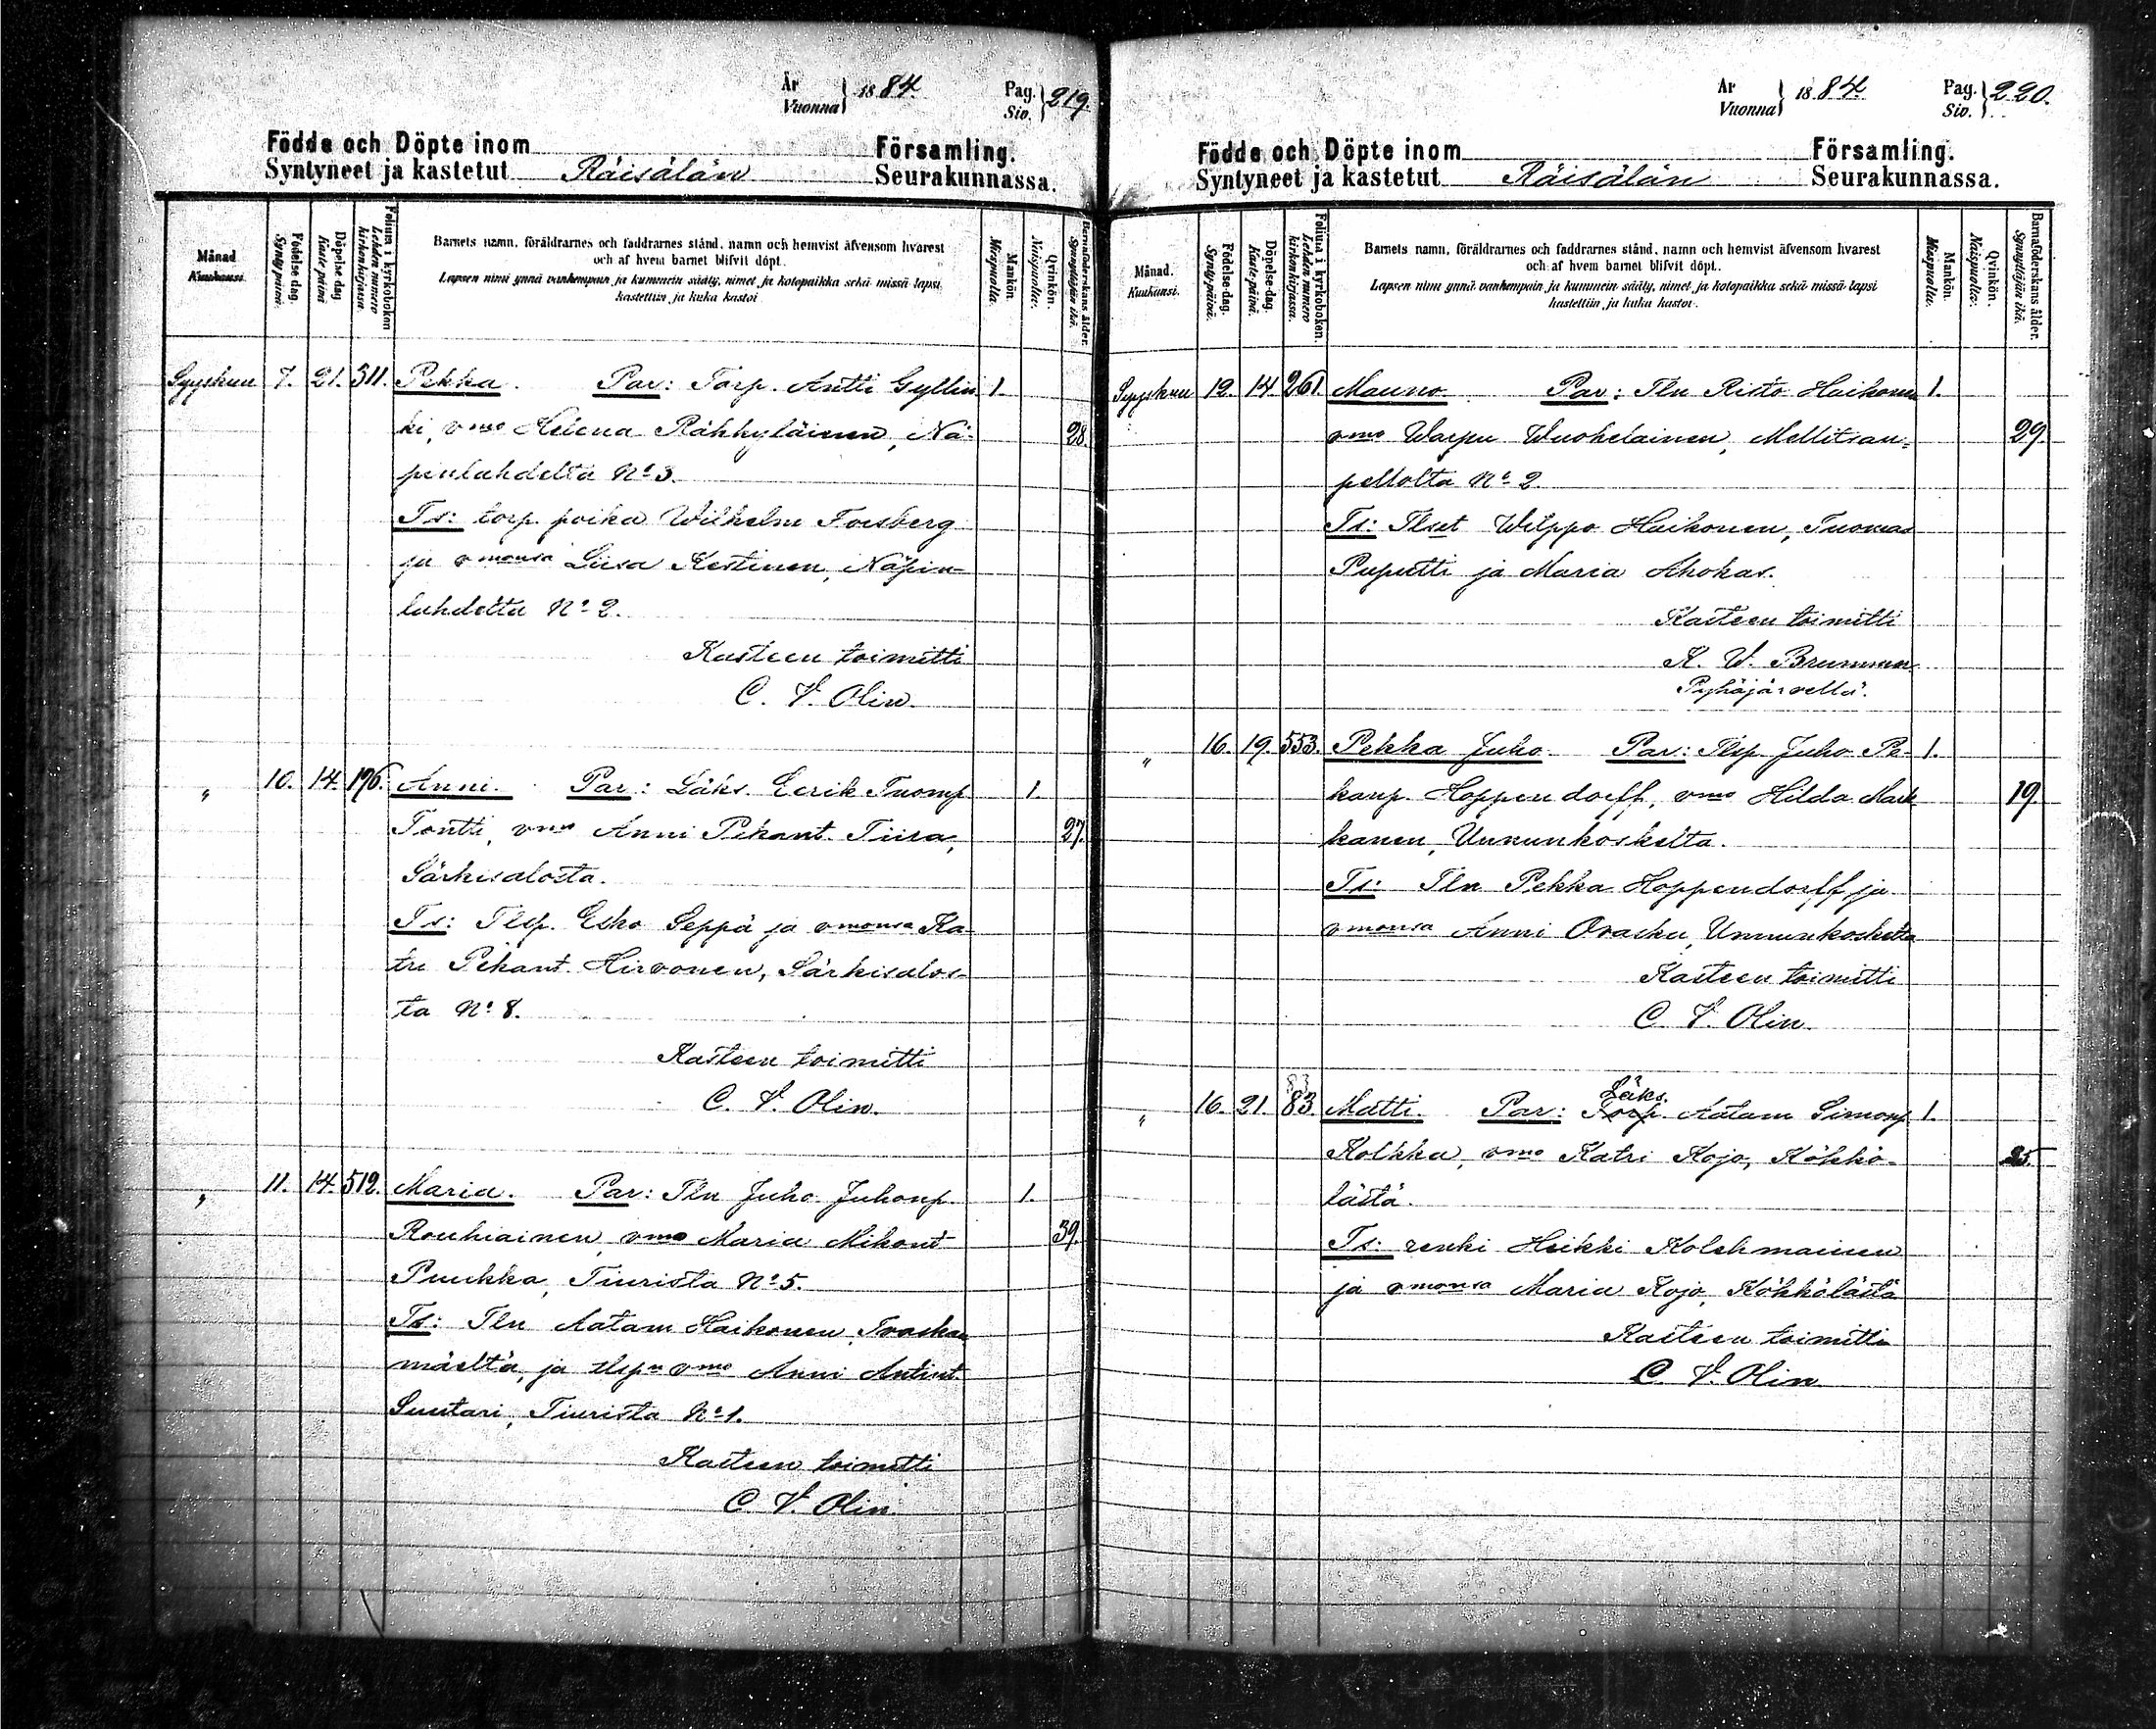 År
Vuonna } 1884.
Pag.
Siv. } 219.
Födde och Döpte inom Församling.
Syntyneet ja kastetut Räisälän Seurakunnassa.
Månad
Kuukausi.
Födelse-dag.
Syntypäivä.
Döpelse-dag
Kastepäivä
Folium i kyrkoboken
Lehden numero
kirkonkirjassa.
Barnets namn, föräldrarnes och faddrarnes stånd, namn och hemvist äfvensom hvarest
och af hvem barnet blifvit döpt.
Lapsen nimi ynnä vanhempain ja kummein sääty, nimet ja kotopaikka sekä missä lapsi
kastettiin ja kuka kastoi
Mankön.
Miespuolia.
Qvinkön.
Naispuolia.
Barnaföderskans ålder.
Synnyttäjän ikä.
Syyskuu 7. 21. 311. Pekka. Par: Torp. Antti Gyllin 1.
ki, vmo Helena Rähkyläinen, Nä- 28.
pinlahdelta No 3.
Ts: torp. poika Wilhelm Forsberg
ja vmonsa Liisa Kestinen, Näpin-
lahdelta No 2.
Kasteen toimitti
C. V. Olin.
" 10. 14. 176. Anni. Par: Läks. Eerik Tuomp. 1.
Tontti, vmo Anni Pekant. Tiisa, 27.
Särkisalosta.
Ts: Tlsp. Esko Seppä ja vmonsa Ka-
tri Pekant. Hirvonen, Särkisalos-
ta No 8.
Kasteen toimitti
C. V. Olin.
" 11. 14. 512. Maria. Par: Tln Juho Juhonp. 1.
Rouhiainen, vmo Maria Mikont 39.
Puukka, Tiurista No 5.
Ts: Tln Aatam Haikonen, Ivaskan
mäeltä, ja tlspn vmo Anni Antint.
Suutari, Tiurista No 1.
Kasteen toimitti
C. V. Olin.
År
Vuonna } 1884.
Pag.
Siv. } 220.
Födde och Döpte inom Församling.
Syntyneet ja kastetut Räisälän Seurakunnassa.
Månad.
Kuukausi.
Födelse-dag.
Syntypäivä.
Döpelse-dag.
Kastepäivä.
Folium i kyrkoboken.
Lehden numero
kirkonkirjassa.
Barnets namn, föräldrarnes och faddrarnes stånd, namn och hemvist äfvensom hvarest
och af hvem barnet blifvit döpt.
Lapsen nimi ynnä vanhempain ja kummein sääty, nimet ja kotopaikka sekä missä lapsi
kastettiin ja kuka kastoi.
Mankön.
Miespuolia.
Qvinkön.
Naispuolia.
Barnaföderskans ålder.
Synnyttäjän ikä.
Syyskuu 12. 14. 261. Mauno. Par: Tln Risto Haikonen 1.
vmo Warpu Wuohelainen, Mellitsan- 29.
pellolta No 2
Ts: Tlset Wilppo Haikonen, Tuomas
Puputti ja Maria Ahokas.
Kasteen toimitti
K. W. Brumman
Pyhäjärvellä.
" 16. 19. 553. Pekka Juho. Par: Tlsp. Juho Pe- 1.
kanp. Hoppendorff, vmo Hilda Mark 19.
kanen, Unnunkoskelta.
Ts: Tln Pekka Hoppendorff ja
vmonsa Anni Orasku, Unnunkoskelta
Kasteen toimitti
C. V. Olin.
83 Läks.
" 16. 21. 83 Matti. Par: Torp. Aatam Simonp 1.
Kolkka, vmo Katri Kojo, Kökkö- 25.
lästä.
Ts: renki Heikki Kolehmainen
ja vmonsa Maria Kojo, Kökkölästä
Kasteen toimitti
C. V. Olin